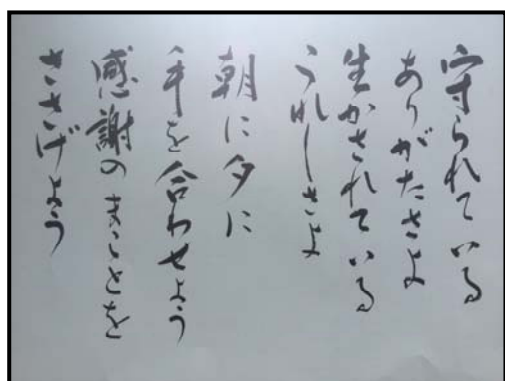 守られている
ありがたさよ
生かされている
うれしさよ
朝に夕に
手を合わせよう
感謝のまことを
ささげよう